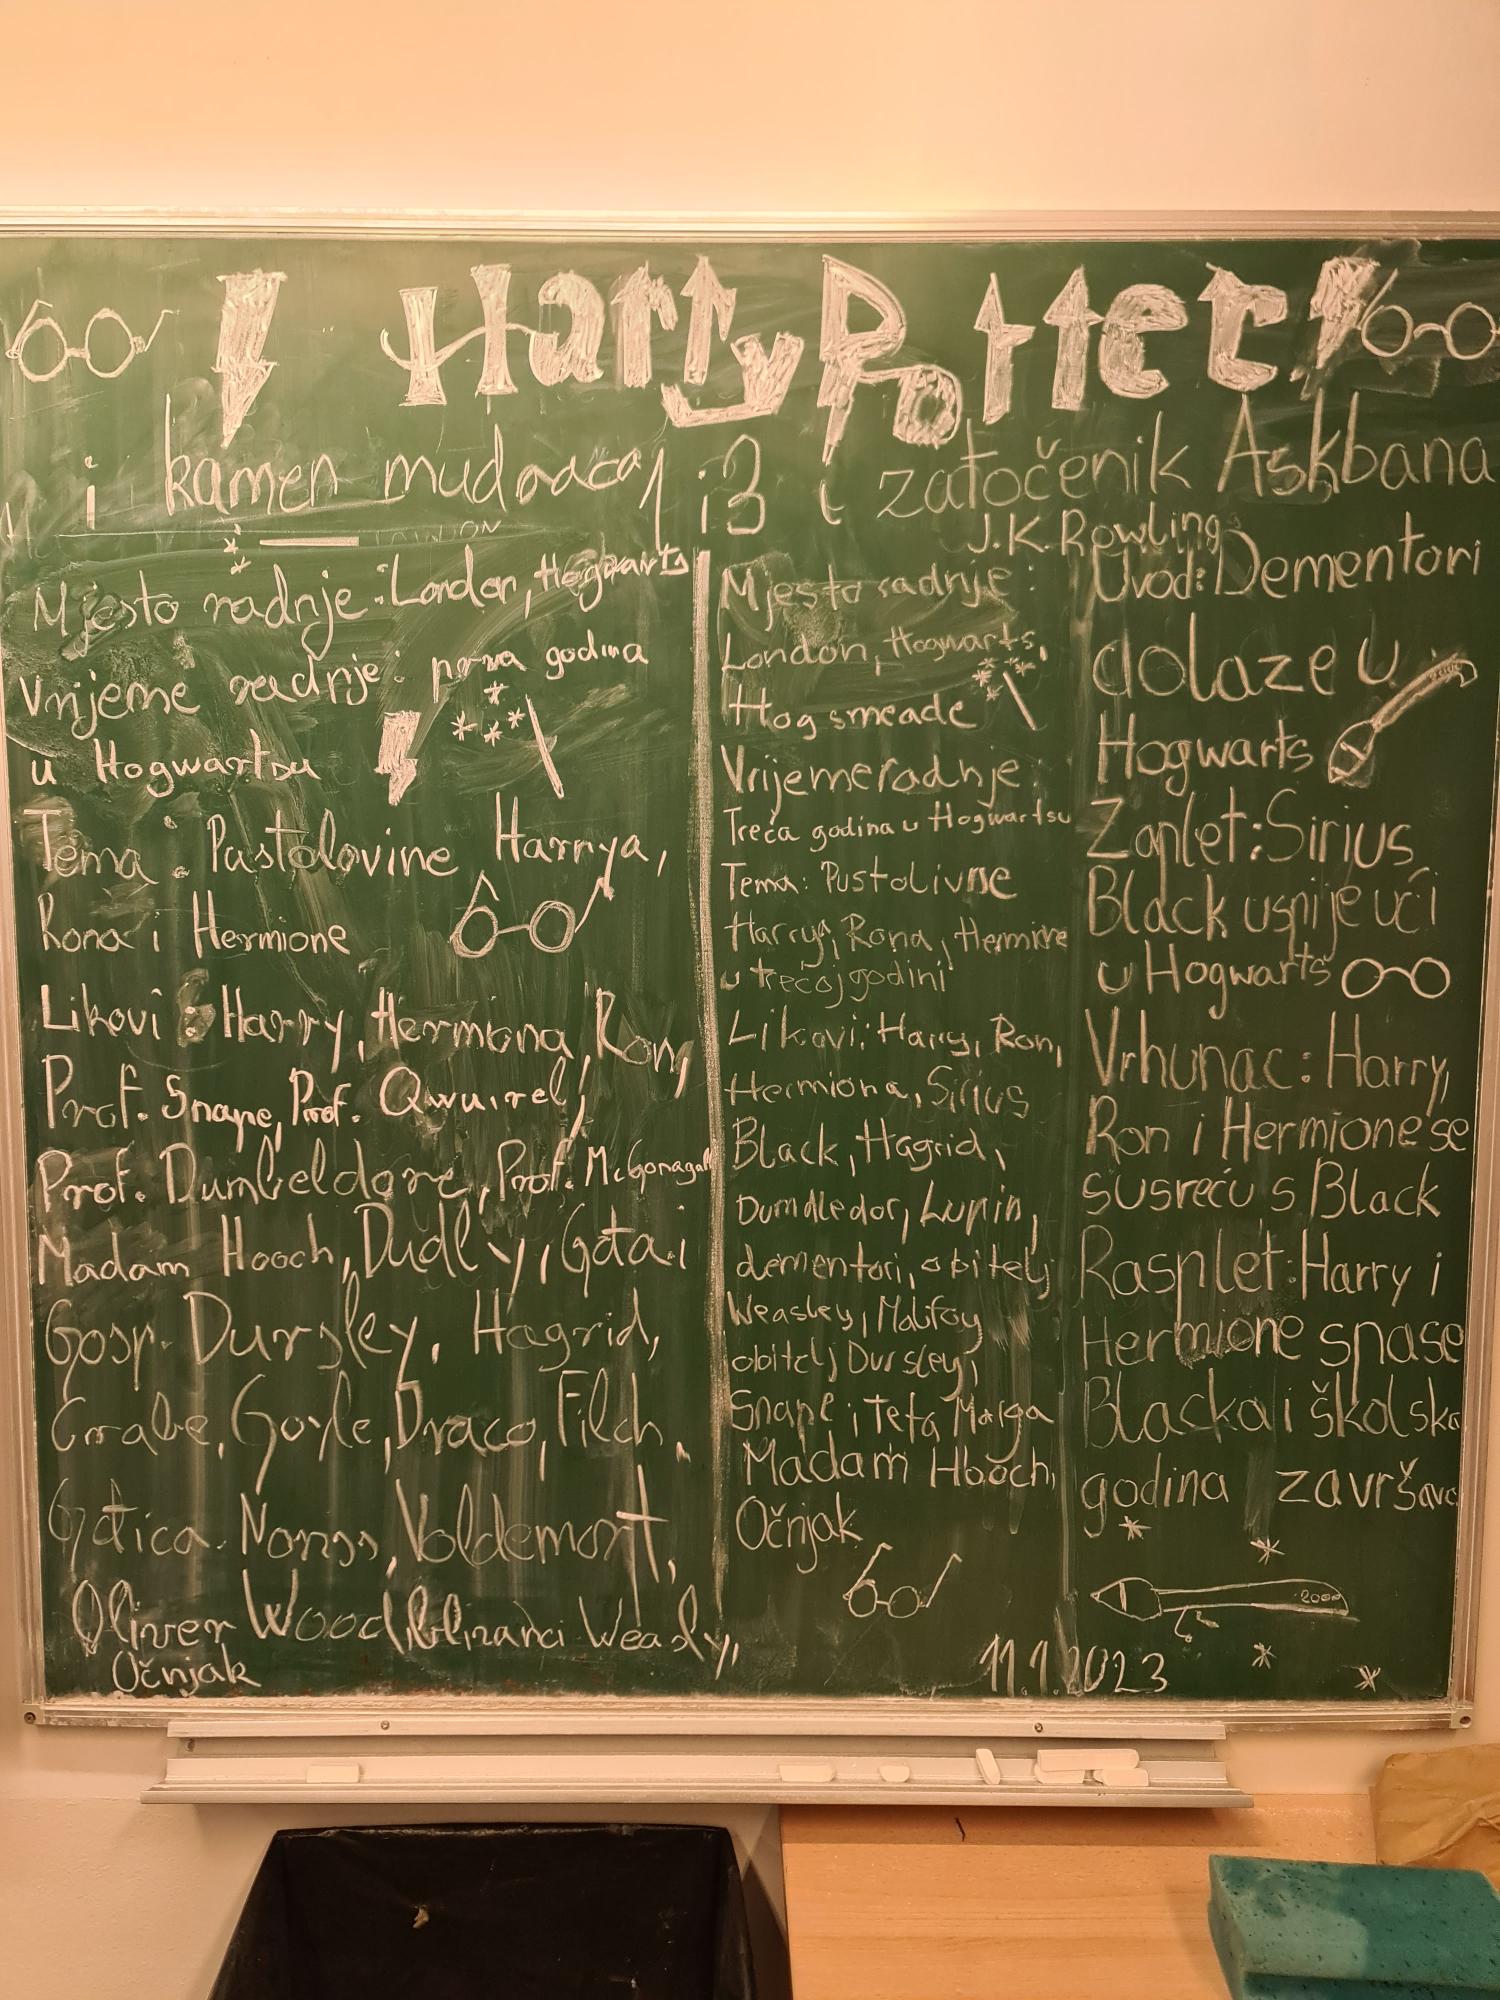 Harry Potter
i kamen mudraca 1 i 3 i zatočenik Askbana
J.K. Rowling
Mjesto radnje: London, Hogwarts
Vrijeme radnje: prva godina
u Hogwartsu
Tema: Pastolovine Harrya,
Rona i Hermione
Likovi: Harry, Hermiona, Ron,
Prof. Snape, Prof. Qwuirel,
Prof. Dumbeldore, Prof. McGonagall
Madam Hooch, Dudly, Gđa.i
Gosp. Dursley, Hagrid,
Crabe, Goyle, Draco, Filch,
Gđica. Norss, Voldemort,
Oliver Wood, blizanci Weasly,
Očnjak
Mjesto radnje:
London, Hogwarts,
Hogsmeade
Vrijeme radnje:
Treća godina u Hogwartsu
Tema: Pustolivne
Harrya, Rona, Hermione
u trećoj godini
Likovi: Harry, Ron,
Hermiona, Sirius
Black, Hagrid,
Dumdledor, Lupin,
dementori, obitelj
Weasley, Malifoy
obitelj Dursley,
Snape i teta Marga
Madam Hooch,
Očnjak
Uvod: Dementori
dolaze u
Hogwarts
Zaplet: Sirius
Black uspije ući
u Hogwarts
Vrhunac: Harry,
Ron i Hermione se
susreću s Black
Rasplet: Harry i
Hermione spase
Blacka i školska
godina završava
2000
11.1.2023